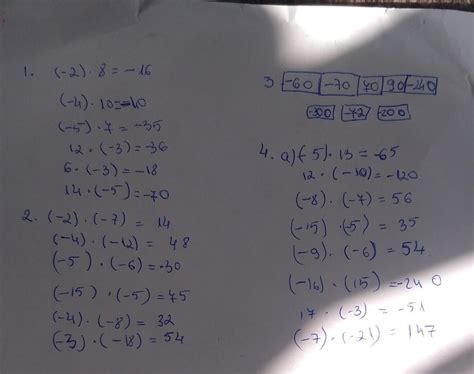 1. (-2) · 8 = -16
(-4) · 10 = -40
(-5) · 7 = -35
12 · (-3) = -36
6 · (-3) = -18
14 · (-5) = -70
2. (-2) · (-7) = 14
(-4) · (-12) = 48
(-5) · (-6) = 30
(-15) · (-5) = 75
(-4) · (-8) = 32
(-3) · (-18) = 54
3 -60 -70 70 90 -240
-300 -72 -200
4. a) (-5) · 13 = -65
12 · (-10) = -120
(-8) · (-7) = 56
(-15) · (5) = 35
(-9) · (-6) = 54
(-16) · (15) = -240
17 · (-3) = -51
(-7) · (-21) = 147